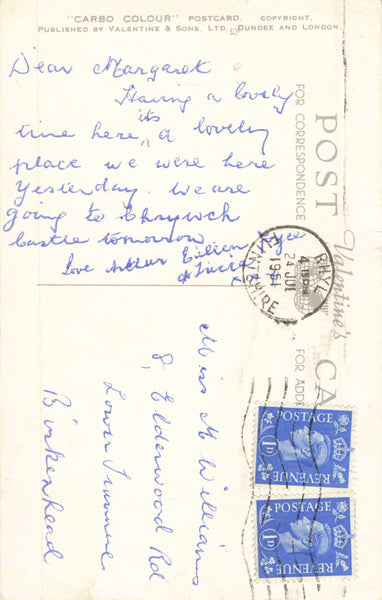 "CARBO COLOUR" POSTCARD. COPYRIGHT.
PUBLISHED BY VALENTINE & SONS, LTD., DUNDEE AND LONDON
Dear Margaret
Having a lovely
its
time here, a lovely
place we were here
Yesterday. We are
going to Chrywch
Castle tomorrow
Love Arthur Eileen
&
POST CA
Valentine's
FOR CORRESPONDENCE
FOR ADD
RHYL
24 JUL
1951
FLINTSHIRE
Miss M Williams
8, Elderwood Rd
Lower Tranmere
Birkenhead
POSTAGE
1D
REVENUE
POSTAGE
1D
REVENUE